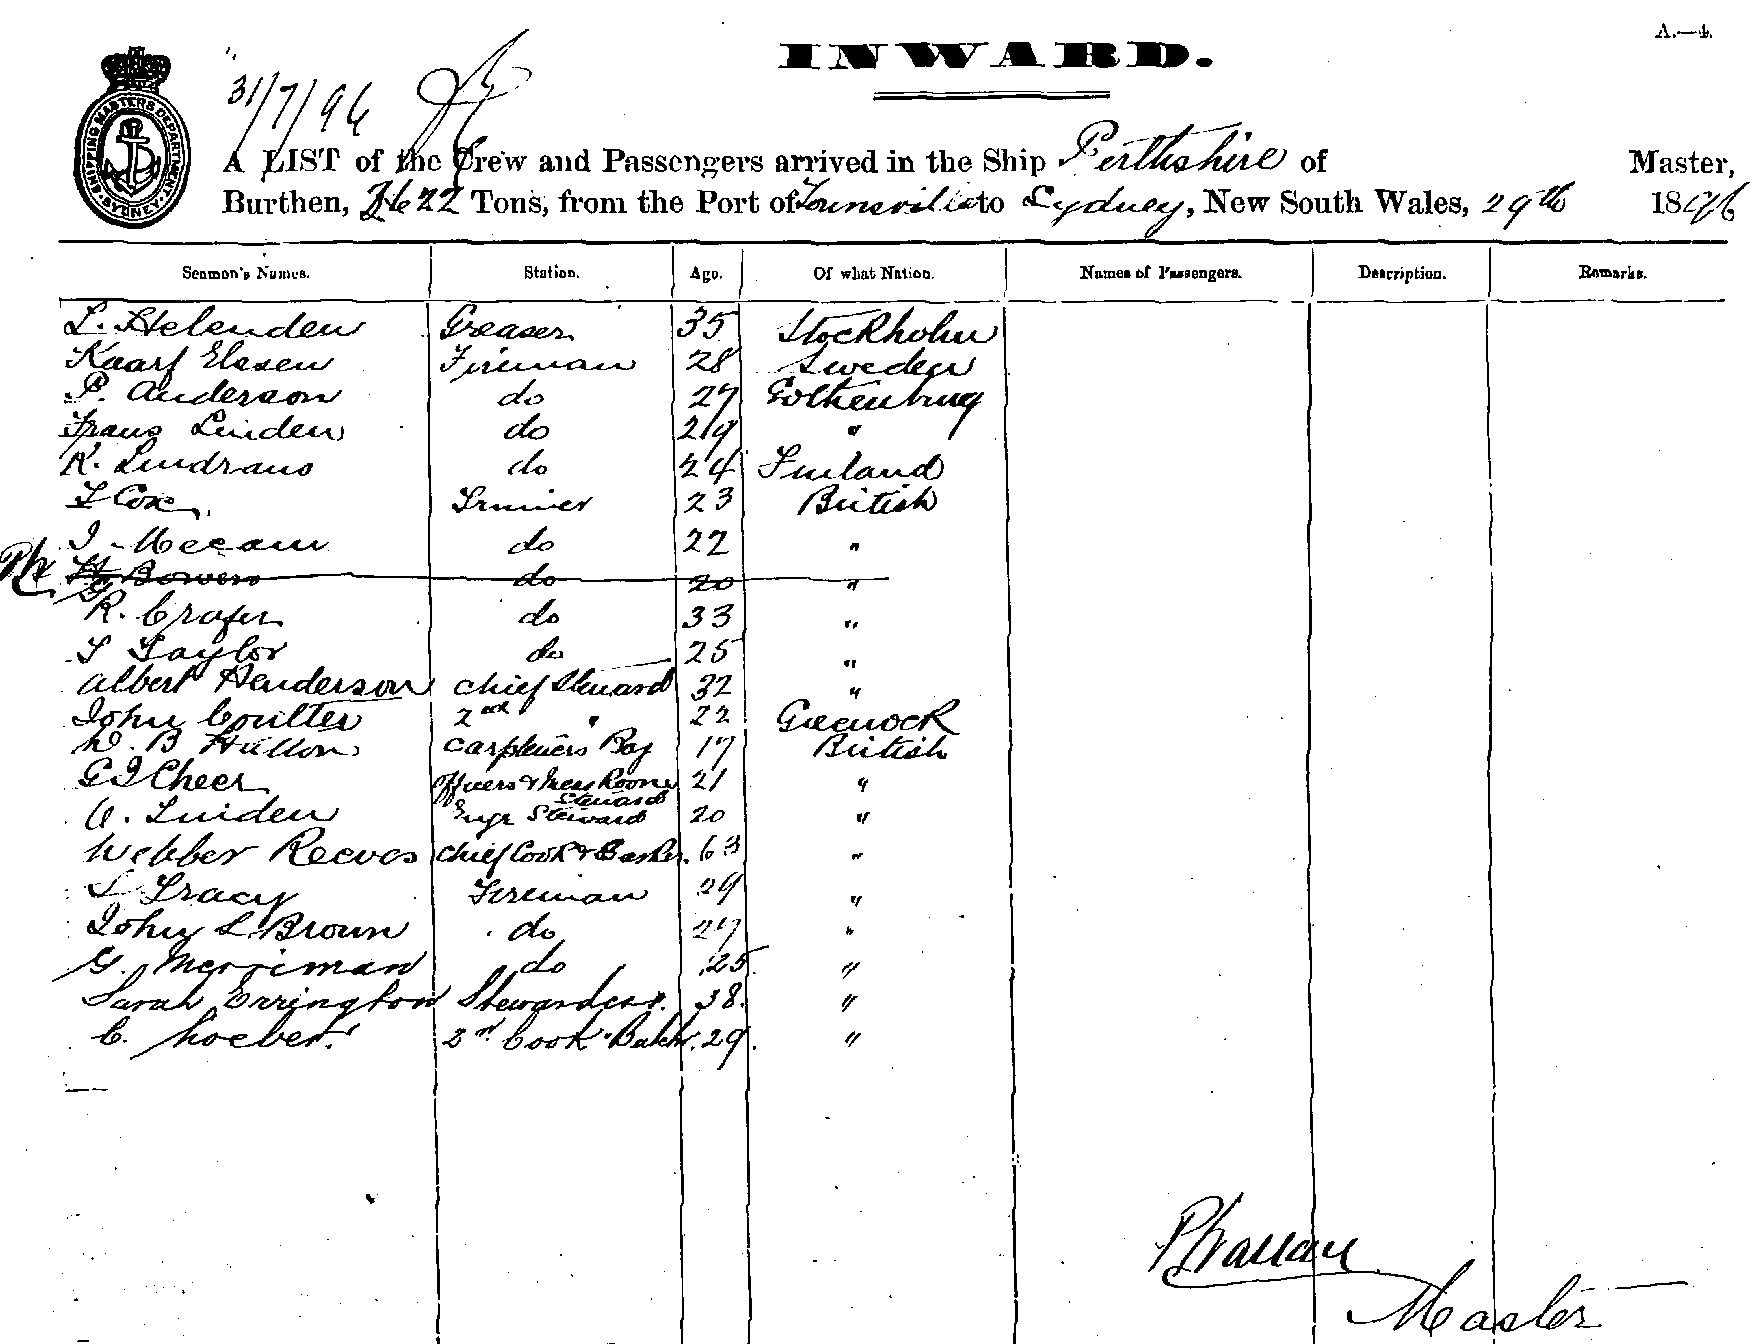 A.—4.
INWARD.
31/7/96
SHIPPING MASTERS DEPARTMENT SYDNEY
A LIST of the Crew and Passengers arrived in the Ship Perthshire of Master,
Burthen, Tons, from the Port of Townsville to Sydney, New South Wales, 29th 1896
Seamen's Names. Station. Age. Of what Nation. Names of Passengers. Description. Remarks.
L. Helenden Greaser 35 Stockholm
Kaarf Elssen Fireman 28 Sweden
P. Anderson do 27 Gothenburg
Frans Linden do 29 "
K. Lindrans do 24 Finland
T Cox Trimer 23 British
J. Mecam do 22 "
Bowers do 20 "
R. Crafer do 33 "
T Taylor do 25 "
Albert Henderson Chief Steward 32 "
John Coulter 2nd " 22 Greenock
W. B Hutton Carpenters Boy 17 British
G J Cheer Officers & Mess Room Steward 21 "
A. Linden Engr Steward 20 "
Webber Reeves Chief Cook & Baker 63 "
T Tracy Fireman 29 "
John L Brown do 27 "
G. Merriman do 25 "
Sarah Errington Stewardess. 38 "
C. 2nd Cook & Baker. 29 "
Master